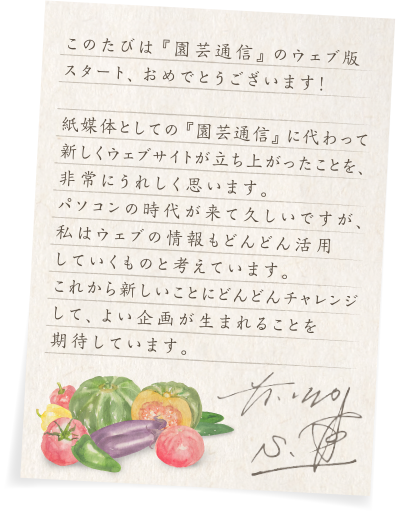 このたびは『園芸通信』のウェブ版
スタート、おめでとうございます!
紙媒体としての『園芸通信』に代わって
新しくウェブサイトが立ち上がったことを、
非常にうれしく思います。
パソコンの時代が来て久しいですが、
私はウェブの情報もどんどん活用
していくものと考えています。
これから新しいことにどんどんチャレンジ
して、よい企画が生まれることを
期待しています。